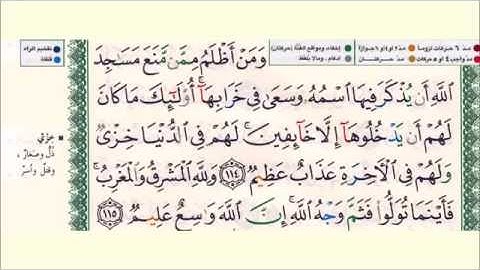 مدّ ٦ حركات لزوماً مدّ ٢ أو ٤ أو ٦ جوازاً إخفاء، ومواقع الغُنَّة (حركتان) تفخيم الراء
مدّ واجب ٤ أو ٥ حركات مدّ حركتان إدغام، وما لا يُلفَظ قلقلة
وَمَنۡ أَظۡلَمُ مِمَّن مَّنَعَ مَسَٰجِدَ
ٱللَّهِ أَن يُذۡكَرَ فِيهَا ٱسۡمُهُۥ وَسَعَىٰ فِي خَرَابِهَآۚ أُوْلَٰٓئِكَ مَا كَانَ
لَهُمۡ أَن يَدۡخُلُوهَآ إِلَّا خَآئِفِينَۚ لَهُمۡ فِي ٱلدُّنۡيَا خِزۡيٞ
وَلَهُمۡ فِي ٱلۡأٓخِرَةِ عَذَابٌ عَظِيمٞ ١١٤ وَلِلَّهِ ٱلۡمَشۡرِقُ وَٱلۡمَغۡرِبُۚ
فَأَيۡنَمَا تُوَلُّواْ فَثَمَّ وَجۡهُ ٱللَّهِۚ إِنَّ ٱللَّهَ وَٰسِعٌ عَلِيمٞ ١١٥
خزي
ذُلٌّ وصَغارٌ
وقتلٌ وأسر